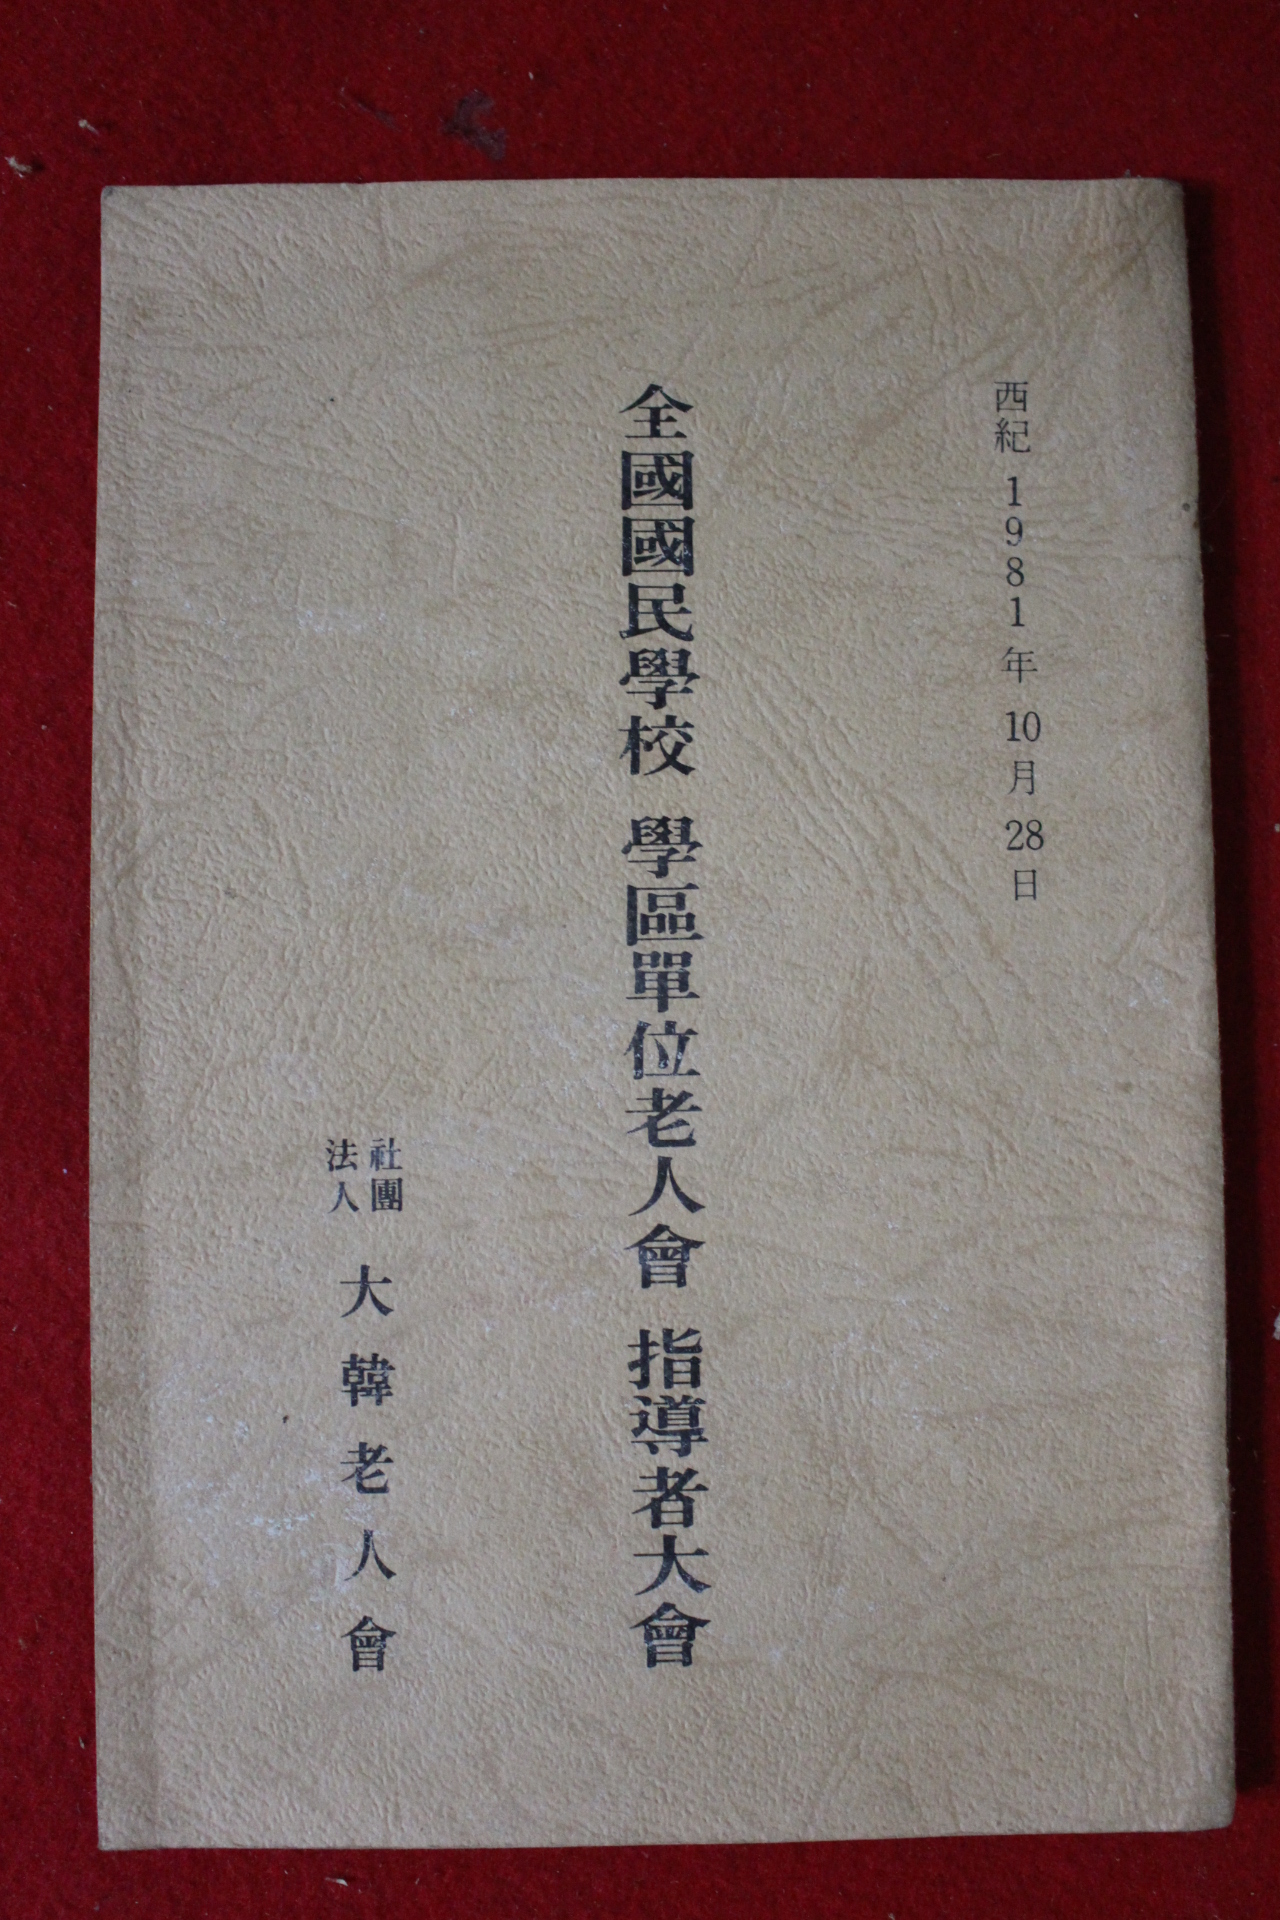 西紀 1981年 10月 28日
全國國民學校 學區單位老人會 指導者大會
社團
法人
大韓老人會